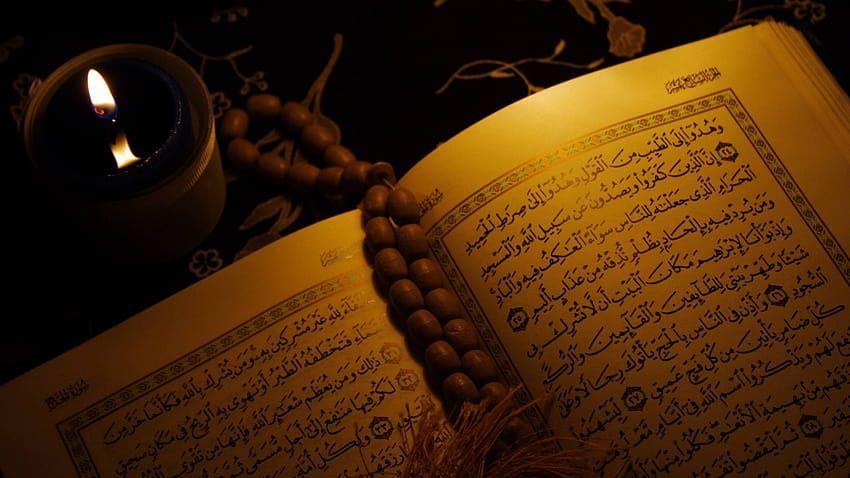 الجزء السابع عشر
وَهُدُوٓا۟ إِلَى ٱلطَّيِّبِ مِنَ ٱلْقَوْلِ وَهُدُوٓا۟ إِلَىٰ صِرَٰطِ ٱلْحَمِيدِ
٢٤ إِنَّ ٱلَّذِينَ كَفَرُوا۟ وَيَصُدُّونَ عَن سَبِيلِ ٱللَّهِ وَٱلْمَسْجِدِ
ٱلْحَرَامِ ٱلَّذِى جَعَلْنَٰهُ لِلنَّاسِ سَوَآءً ٱلْعَٰكِفُ فِيهِ وَٱلْبَادِ
وَمَن يُرِدْ فِيهِ بِإِلْحَادٍۭ بِظُلْمٍ نُّذِقْهُ مِنْ عَذَابٍ أَلِيمٍ ٢٥
وَإِذْ بَوَّأْنَا لِإِبْرَٰهِيمَ مَكَانَ ٱلْبَيْتِ أَن لَّا تُشْرِكْ بِى
شَيْـًٔا وَطَهِّرْ بَيْتِىَ لِلطَّآئِفِينَ وَٱلْقَآئِمِينَ وَٱلرُّكَّعِ
ٱلسُّجُودِ ٢٦ وَأَذِّن فِى ٱلنَّاسِ بِٱلْحَجِّ يَأْتُوكَ رِجَالًا وَعَلَىٰ
كُلِّ ضَامِرٍ يَأْتِينَ مِن كُلِّ فَجٍّ عَمِيقٍ ٢٧ لِّيَشْهَدُوا۟
لَهُمْ وَيَذْكُرُوا۟ ٱسْمَ ٱللَّهِ فِىٓ أَيَّامٍ مَّعْلُومَٰتٍ
مِّنۢ بَهِيمَةِ ٱلْأَنْعَٰمِ فَكُلُوا۟ مِنْهَا
ثُمَّ لْيَقْضُوا۟
سورة الحج
لِلَّهِ غَيْرَ مُشْرِكِينَ بِهِۦ وَمَن يُشْرِكْ بِٱللَّهِ فَكَأَنَّمَا خَرَّ مِنَ
فَتَخْطَفُهُ ٱلطَّيْرُ أَوْ تَهْوِى بِهِ ٱلرِّيحُ فِى مَكَانٍ سَحِيقٍ
ذَٰلِكَ وَمَن يُعَظِّمْ شَعَٰٓئِرَ ٱللَّهِ فَإِنَّهَا مِن تَقْوَى
لَكُمْ فِيهَا مَنَٰفِعُ إِلَىٰٓ أَجَلٍ مُّسَمًّى ثُمَّ
٣٣ وَلِكُلِّ أُمَّةٍ